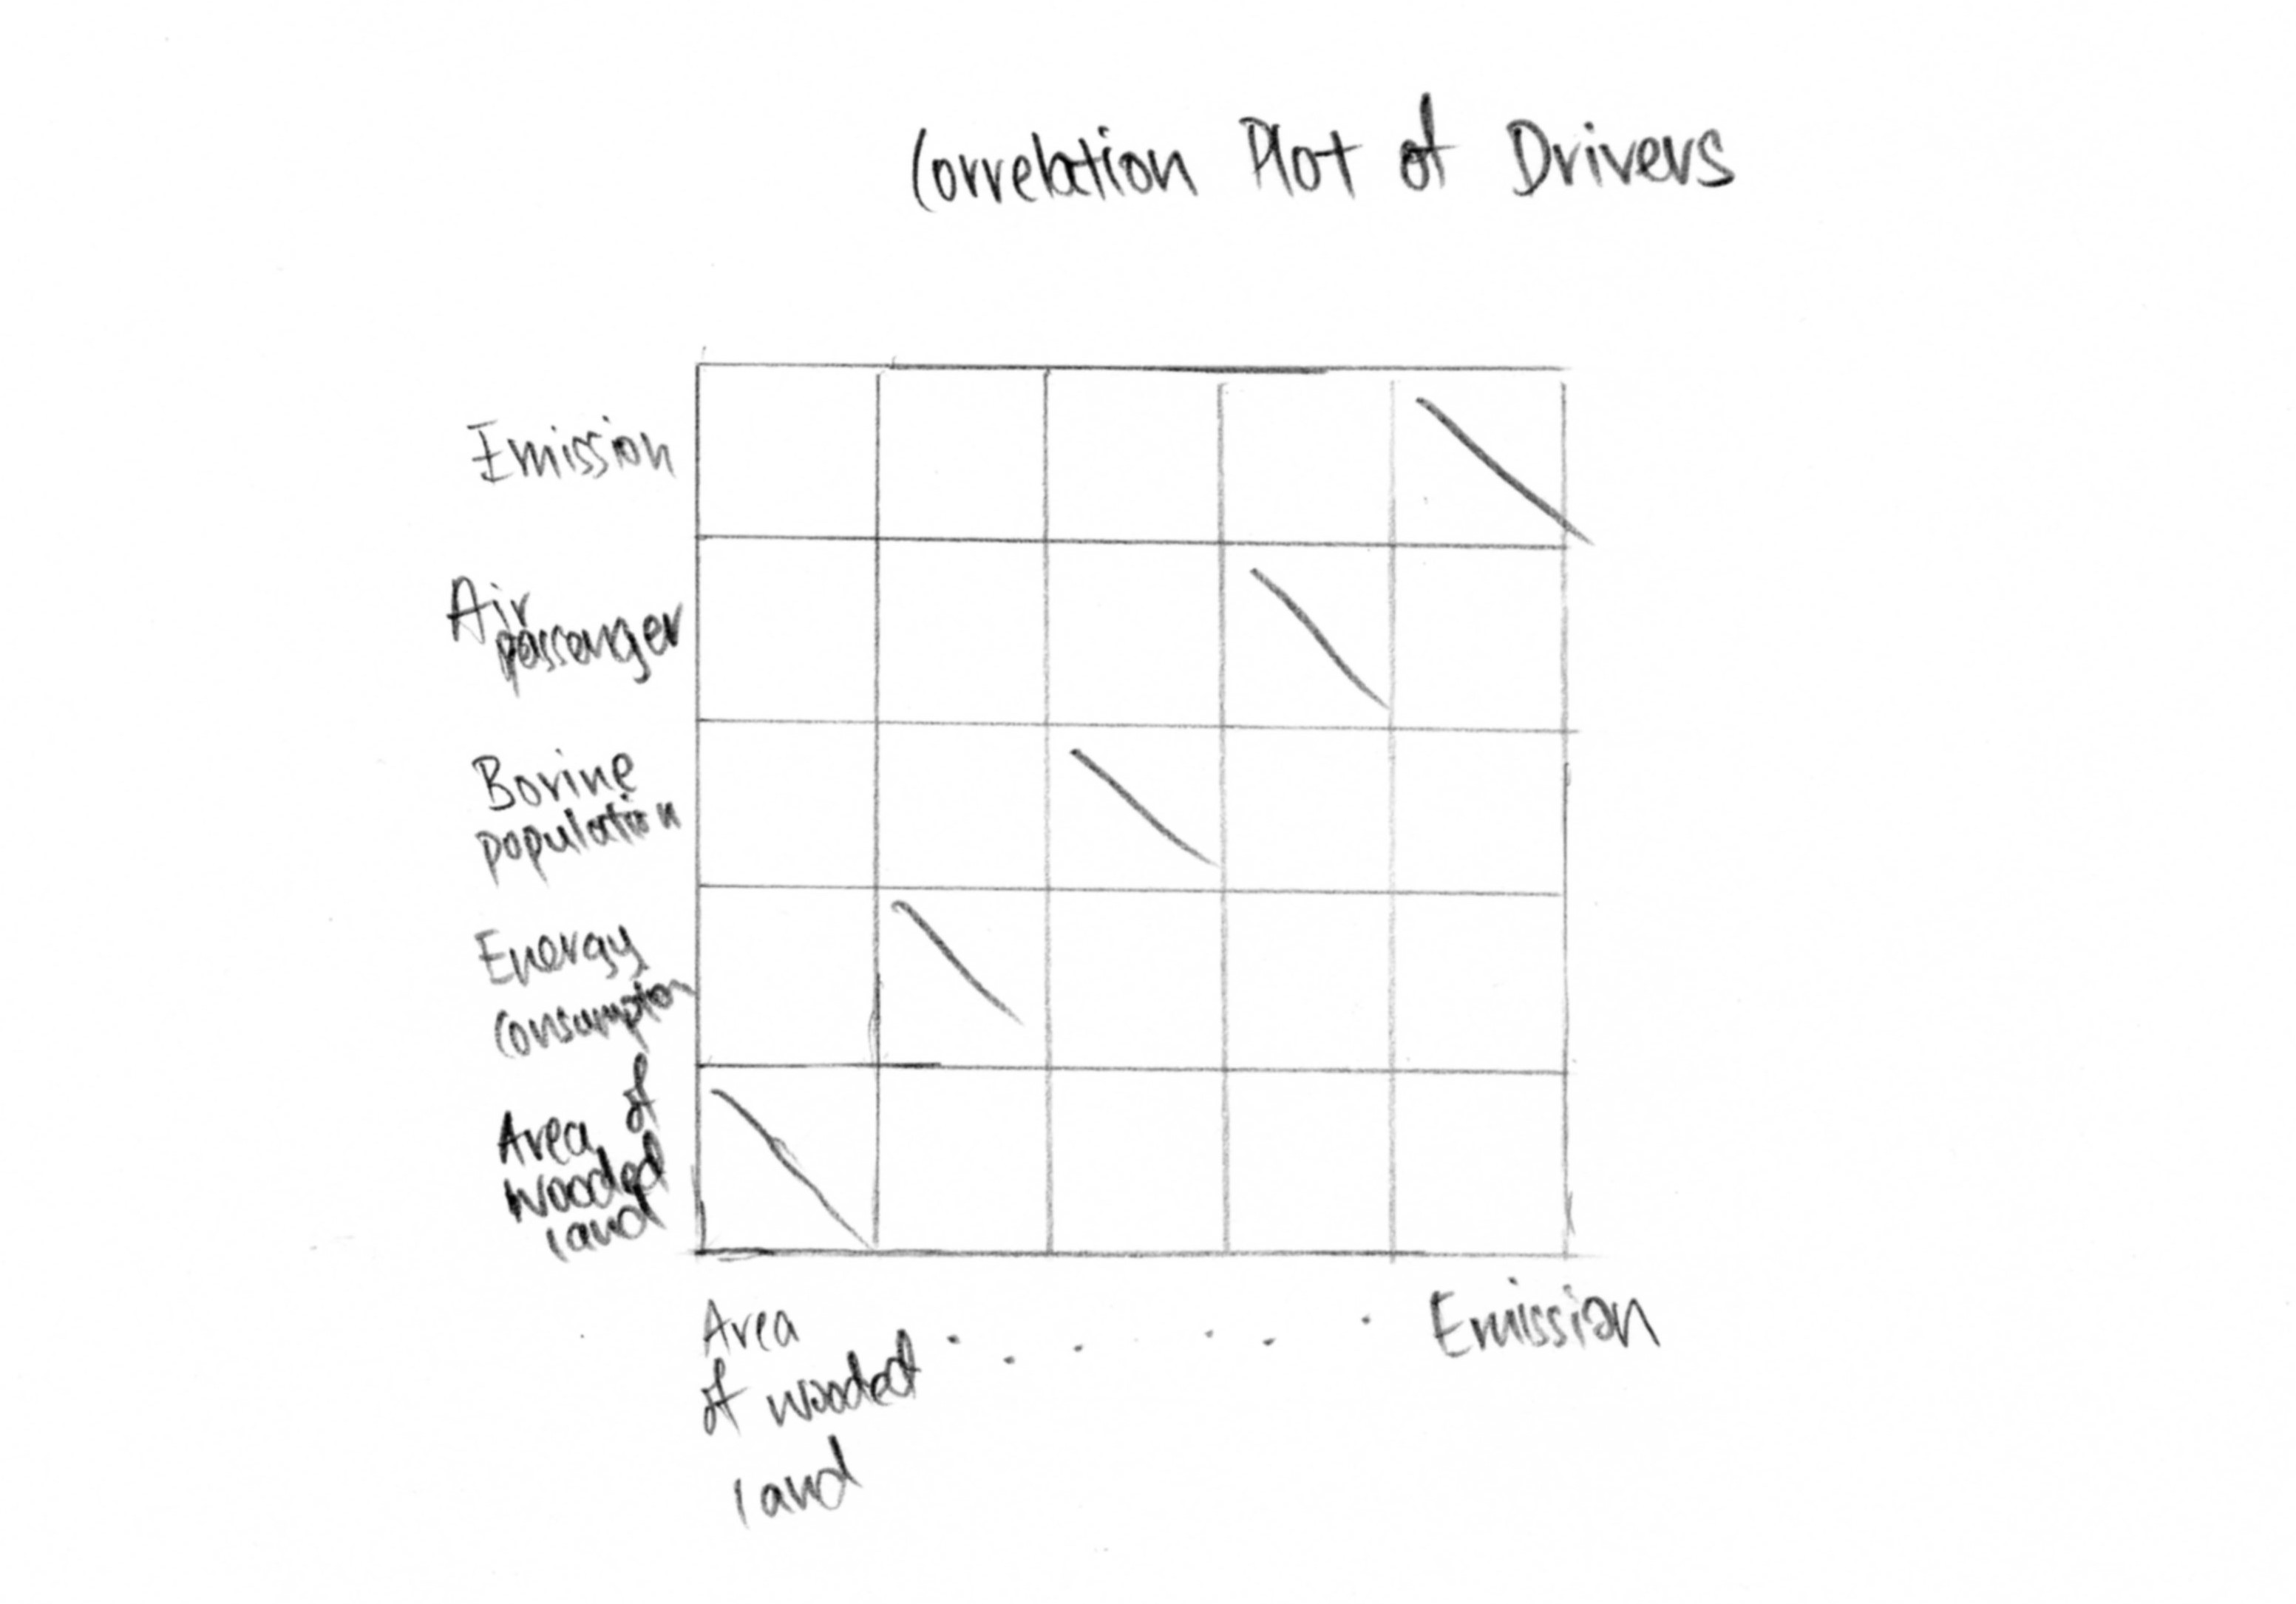 Correlation Plot of Drivers
Emission
Air
passenger
Bovine
population
Energy
consumption
Area of
wooded
land
Area
of wooded . . . . . . Emission
land